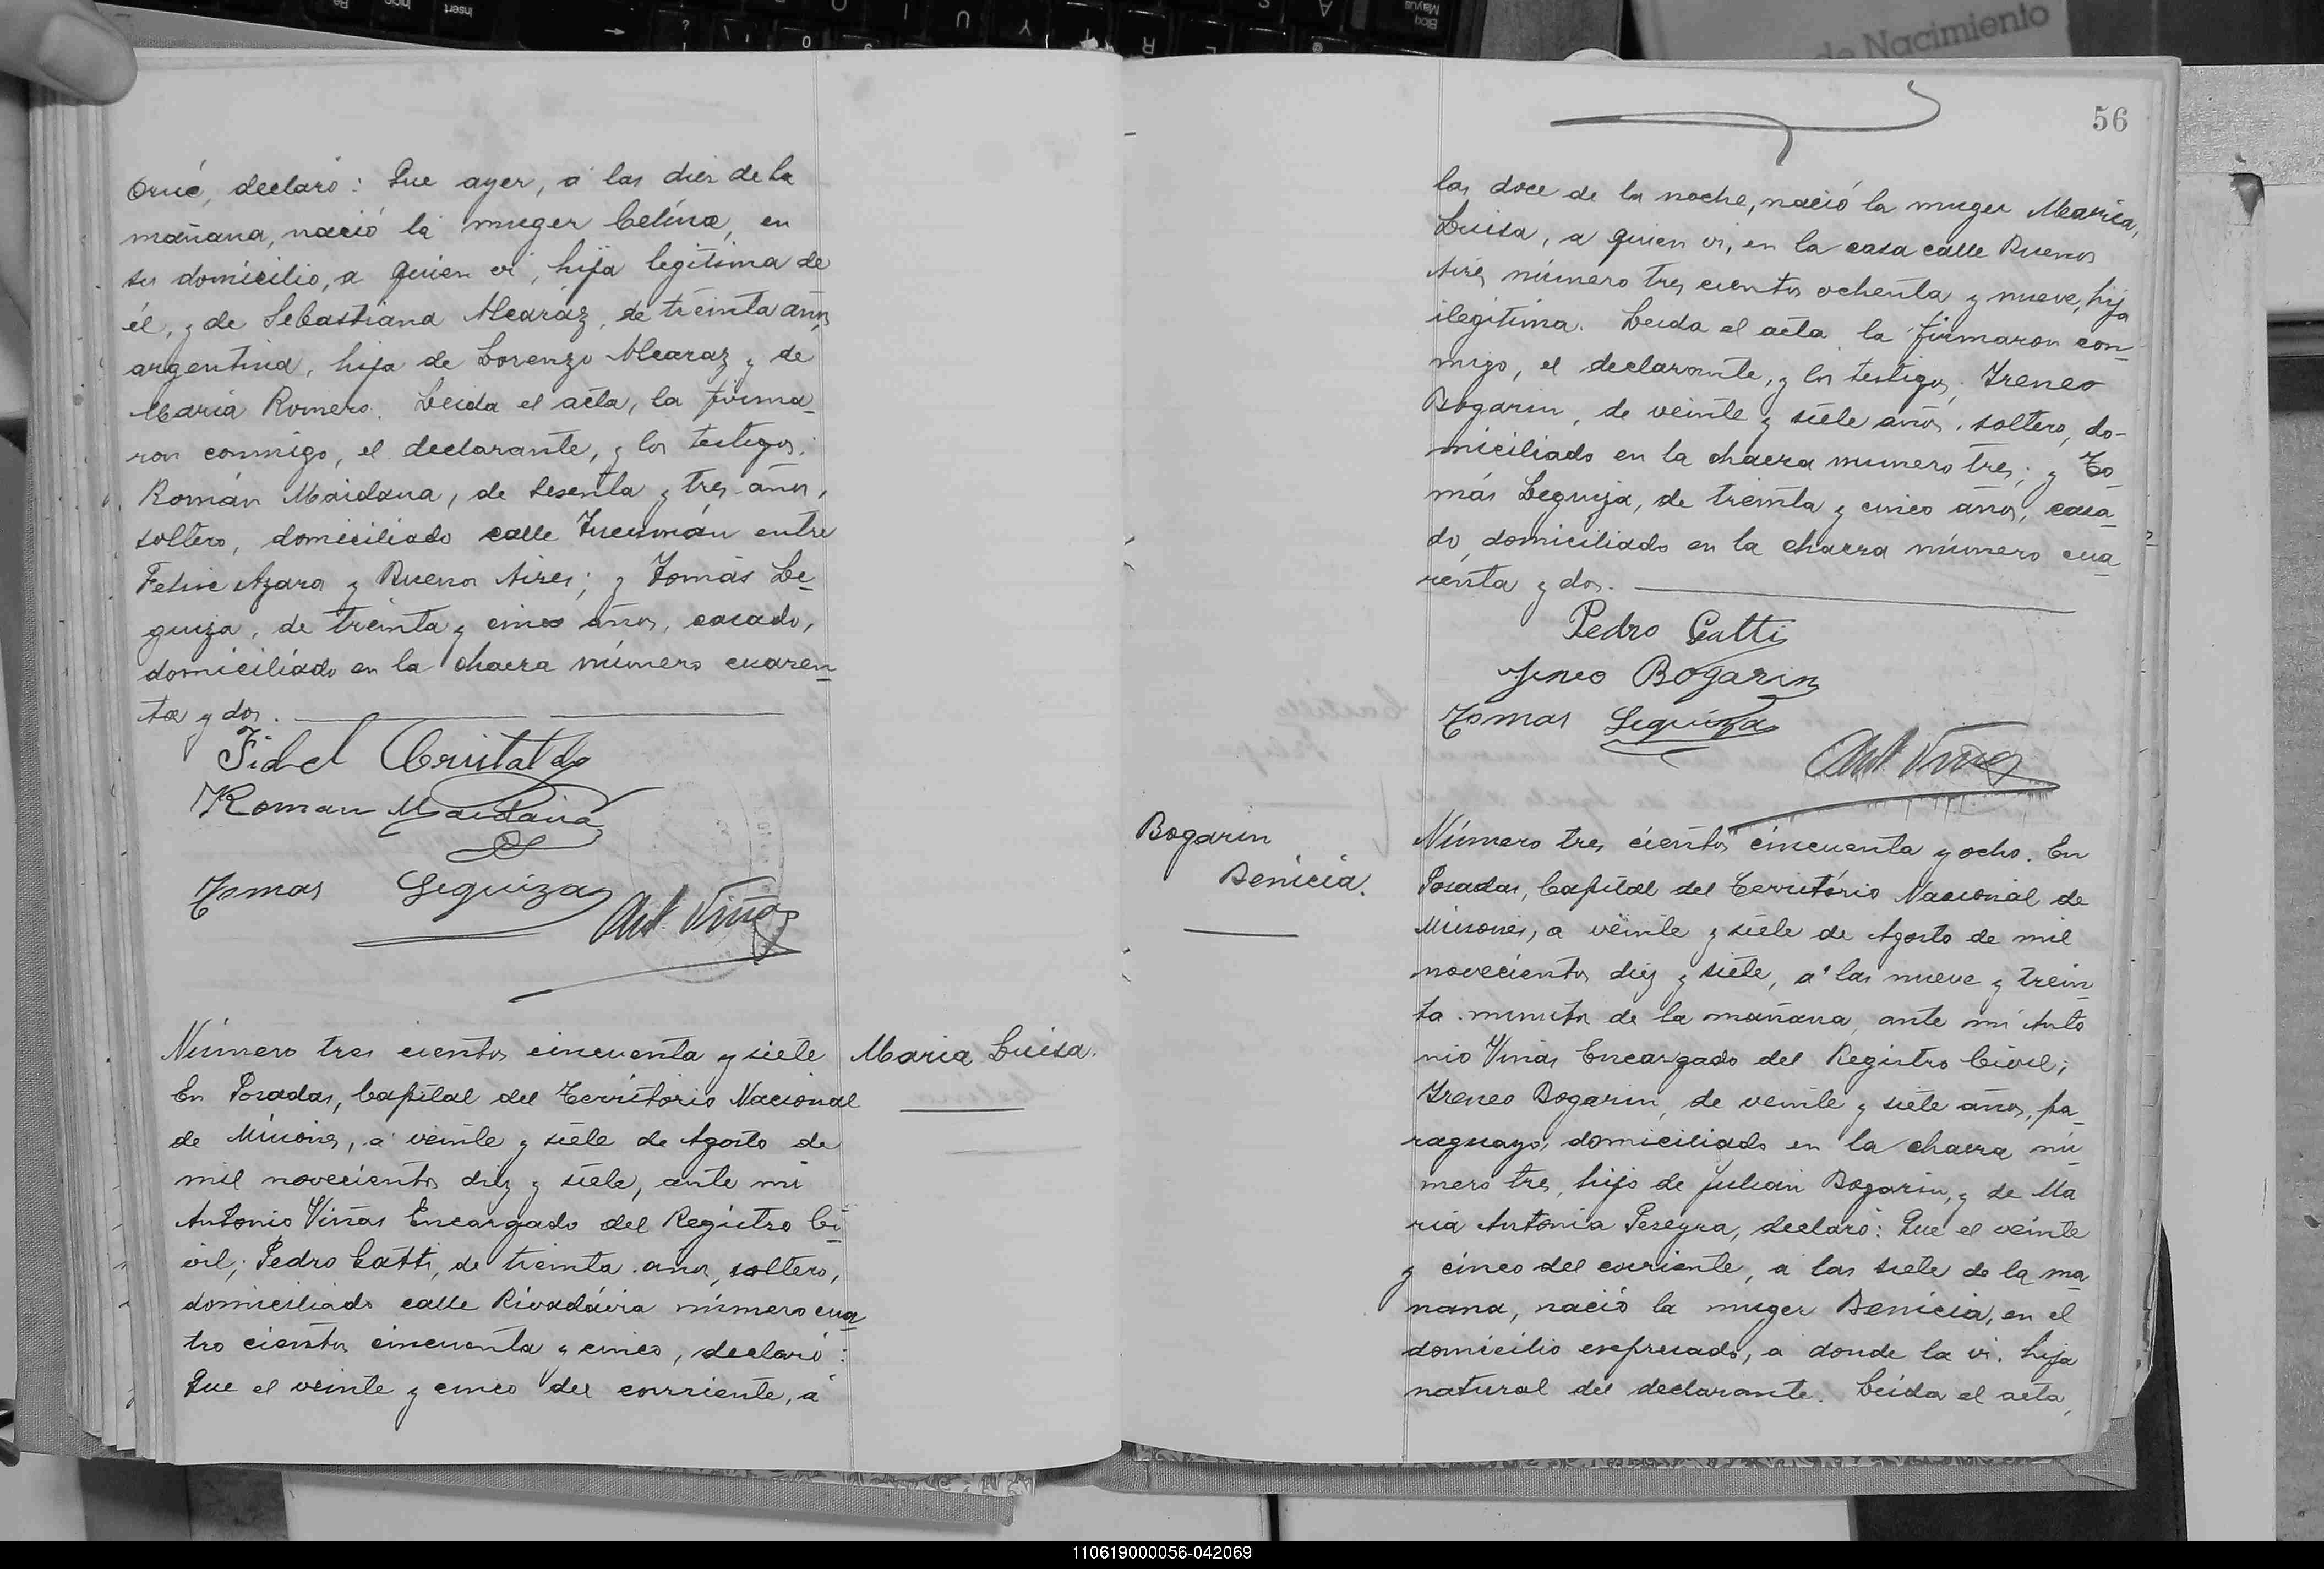 Orué, declaró: Que ayer, á las diez de la
mañana, nació la muger Celína, en
su domicilio, a quien ví, hija legítima de
él, y de Sebastiana Alcaráz, de treinta años,
argentina, hija de Lorenzo Alcaraz y de
María Romero. Leida el acta, la firma_
ron conmigo, el declarante, y los testigos:
Román Maidana, de sesenta y tres años,
soltero, domiciliado calle Tucumán entre
Felix Azara y Buenos Aires; y Tomás Le_
guiza, de treinta y cinco años, casado,
domiciliado en la chacra número cuaren_
ta y dos.
Fidel Cristaldo
Roman Maidana
Tomas Leguiza
Ant. Viñas
Número tres cientos cincuenta y siete
Maria Luisa.
En Posadas, Capital del Território Nacional
de Misiones, á veinte y siete de Agosto de
mil novecientos diez y siete, ante mi
Antonio Viñas Encargado del Registro Ci_
vil; Pedro Gatti, de treinta años, soltero,
domiciliado calle Rivadávia número cua_
tro cientos cincuenta y cinco, declaró:
Que el veinte y cinco del corriente, á
56
las doce de la noche, nació la muger María,
Luisa, a quien vi, en la casa calle Buenos
Aires número tres cientos ochenta y nueve, hija
ilegítima. Leida el acta, la firmaron con_
migo, el declarante, y los testigos: Ireneo
Bogarin, de veinte y siete años, soltero, do-
miciliado en la chacra numero tres; y To_
más Leguiza, de treinta y cinco años, casa_
do, domiciliado en la chacra número cua_
renta y dos.
Pedro Gatti
Ireneo Bogarin
Tomas Leguiza
Ant. Viñas
Bogarin
Benicia.
Número tres cientos cincuenta y ocho. En
Posadas, Capital del Território Nacional de
Misiones, a veinte y siete de Agosto de mil
novecientos diez y siete, a las nueve y trein_
ta minutos de la mañana, ante mi Anto
nio Viñas Encargado del Registro Civil;
Ireneo Bogarin, de veinte y siete años, pa_
raguayo, domiciliado en la chacra nú_
mero tres, hijo de Julian Bogarin, y de Ma
ria Antonia Pereyra, declaró: Que el veinte
y cinco del corriente, a las siete de la ma
nana, nació la muger Benicia, en el
domicilio expresado, a donde la vi. hija
natural del declarante. Leida el acta,
110619000056-042069